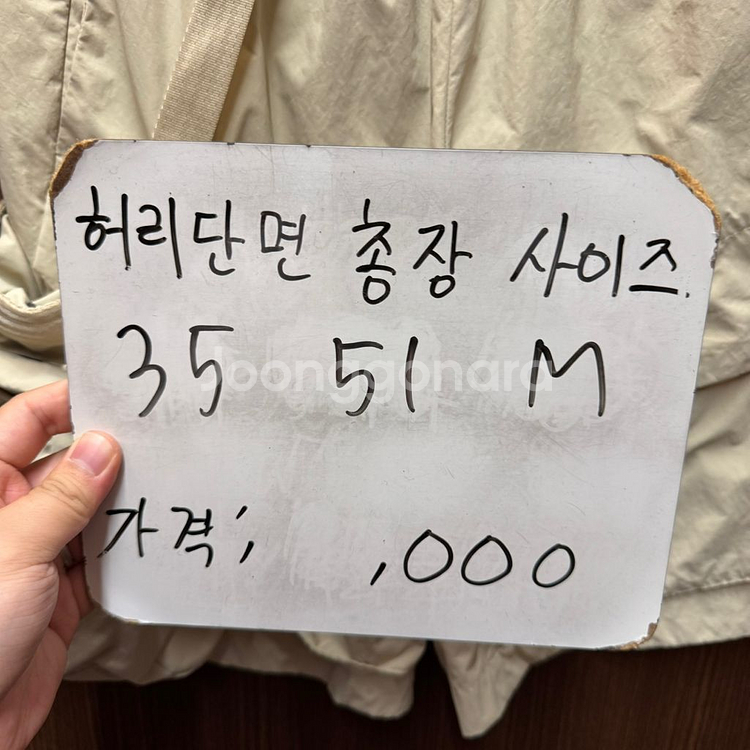 허리단면 총장 사이즈.
35 51 M
Joonggonara
가격; ,000